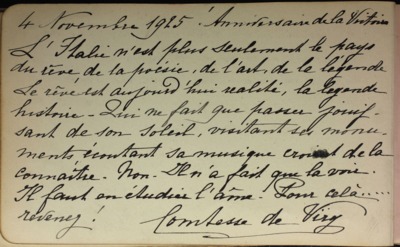 4 Novembre 1925 Anniversaire de la Victoire
L'Italie n'est plus seulement le pays
du rêve, de la poésie, de l'art, de la légende
Le rêve est aujourd'hui realité, la legende
histoire - Qui ne fait que passer jouis-
sant de son soleil, visitant ses monu-
ments écoutant sa musique croit de la
connaître. Non - Il n'a fait que la voir.
Il faut en étudier l'âme. Pour celà.....
revenez!
Comtesse de Viry